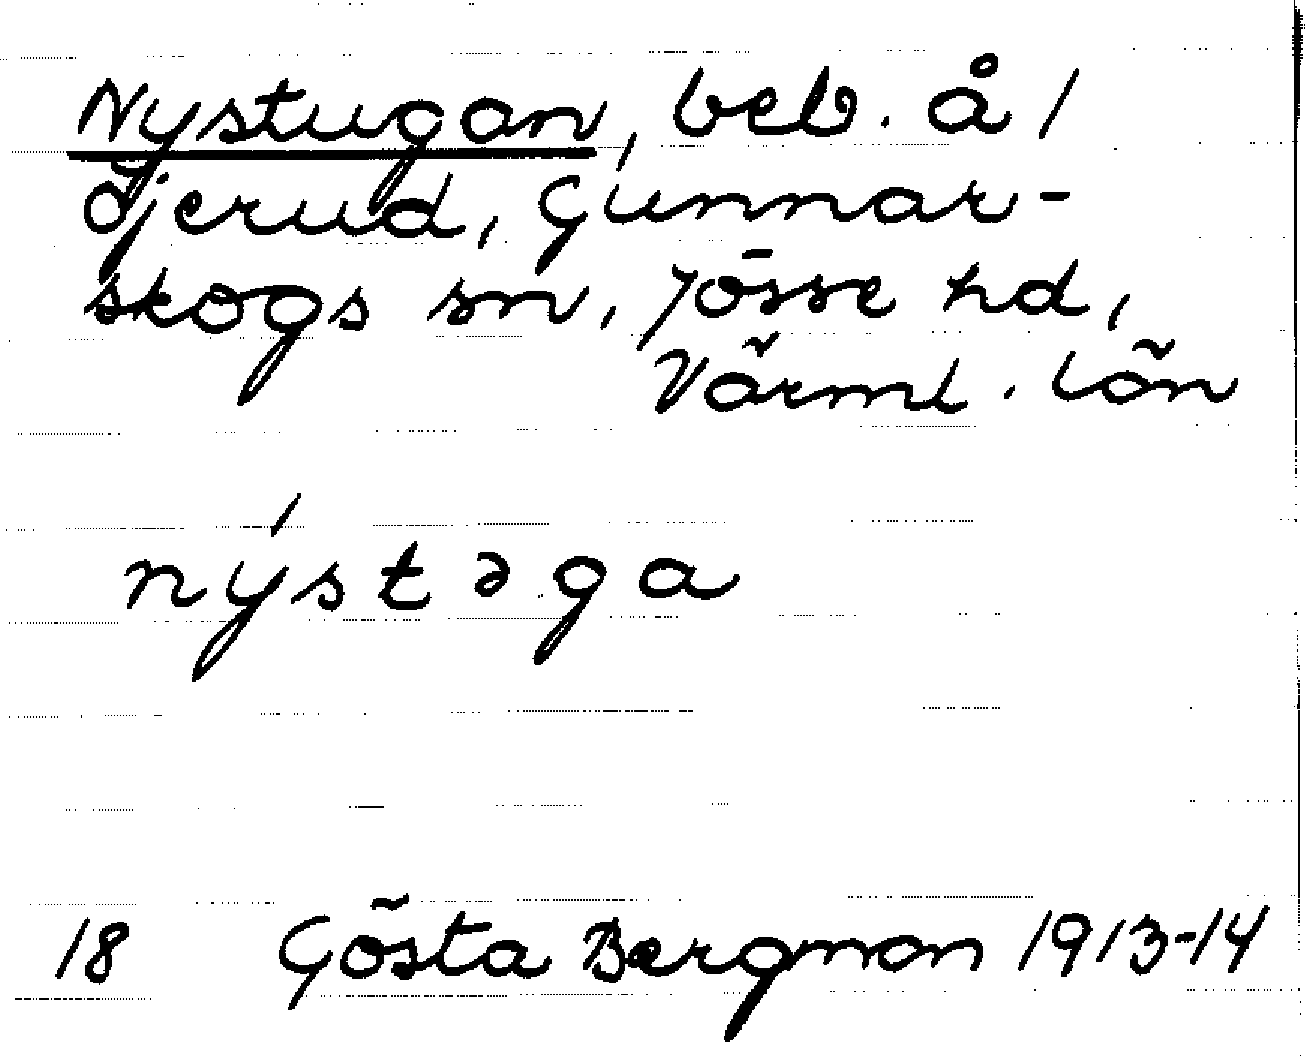 Nystugan, beb. å 1
Djerud, Gunnar-
skogs sn, Jösse hd,
Värml. län
nýstəga
18 Gösta Bergman 1913-14